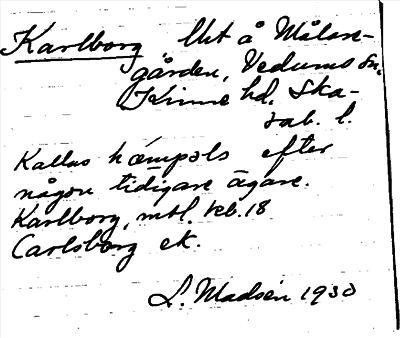 Karlborg, lht å Målare-
gården, Vedums sn,
Kinne hd, Ska-
rab. l.
Kallas hæmpəls efter
någon tidigare ägare.
Karlborg, mtl. keb. 18
Carlsborg ek.
L. Madsén 1930